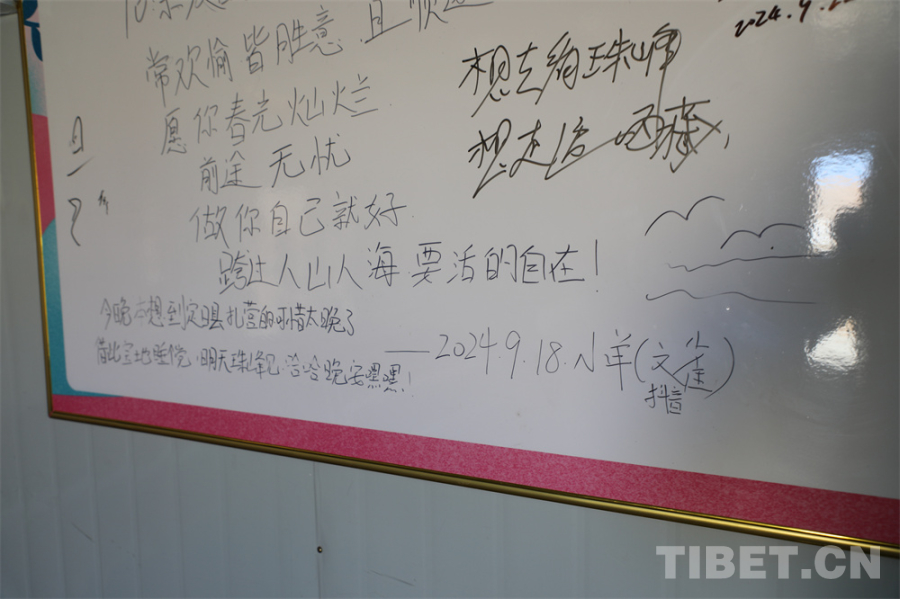 2024.9.22
常欢愉皆胜意 且顺遂
愿你春光灿烂
前途无忧
做你自己就好
跨过人山人海 要活的自在!
想去绚珠峰
想走遍西藏,
且
今晚本想到定日县扎营的可惜太晚了
借此宝地睡觉,明天珠峰见·哈哈晚安嘿嘿!
——2024.9.18.小羊(文鉴)
抖音
TIBET.CN